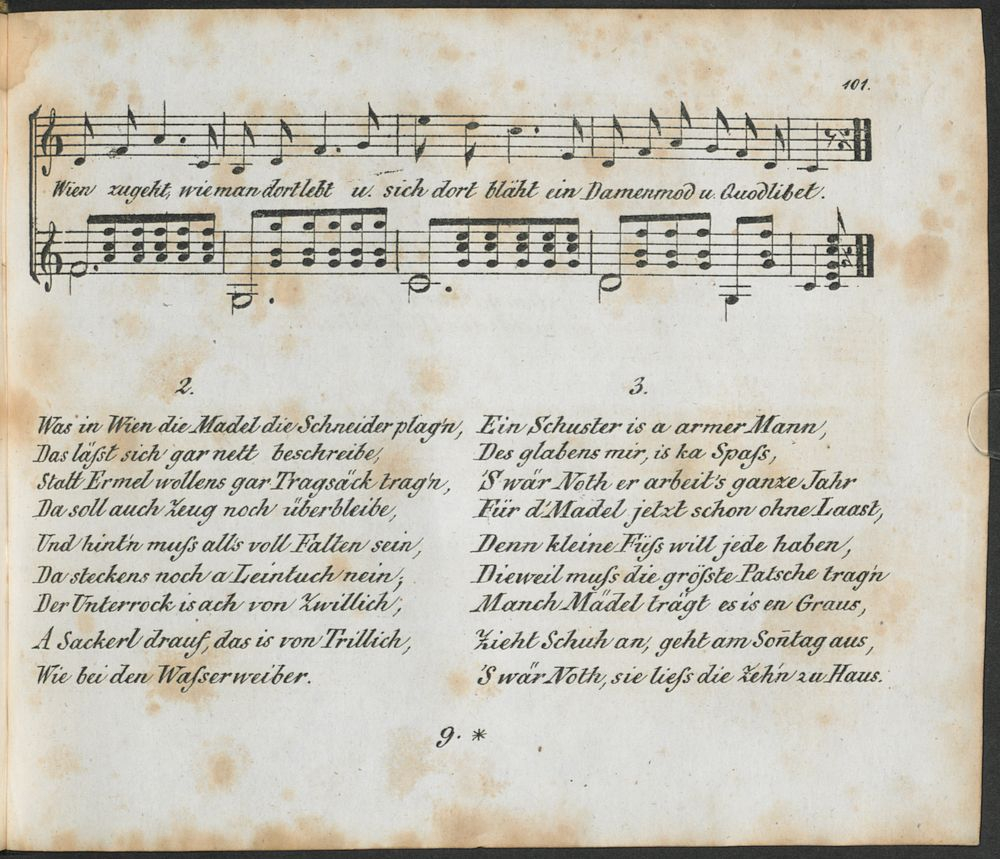 101.
Wien zugeht, wie man dort lebt u. sich dort bläht ein Damenmod u. Quodlibet.
2.
Was in Wien die Madel die Schneider plag'n,
Das läſst sich gar nett beschreibe,
Statt Ermel wollens gar Tragsäck trag'n,
Da soll auch Zeug noch überbleibe,
Und hint'n muſs alls voll Falten sein,
Da steckens noch a Leintuch 'nein,
Der Unterrock is ach von Zwillich,
A Sackerl drauf, das is von Trillich,
Wie bei den Waſserweiber.
3.
Ein Schuster is a armer Mann,
Des glabens mir, is ka Spaſs,
'S wär Noth er arbeit's ganze Jahr
Für d'Madel jetzt schon ohne Laast,
Denn kleine Füſs will jede haben,
Dieweil muſs die gröſste Patsche trag'n
Manch Mädel trägt es is en Graus,
Zieht Schuh an, geht am Son̄tag aus,
'S wär Noth, sie lieſs die Zeh'n zu Haus.
9. *